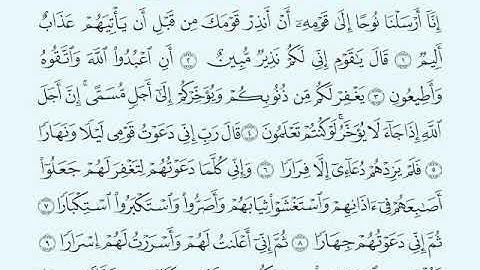 إِنَّآ أَرْسَلْنَا نُوحًا إِلَىٰ قَوْمِهِۦٓ أَنْ أَنذِرْ قَوْمَكَ مِن قَبْلِ أَن يَأْتِيَهُمْ عَذَابٌ
أَلِيمٌ ١ قَالَ يَٰقَوْمِ إِنِّى لَكُمْ نَذِيرٌ مُّبِينٌ ٢ أَنِ ٱعْبُدُوا۟ ٱللَّهَ وَٱتَّقُوهُ
وَأَطِيعُونِ ٣ يَغْفِرْ لَكُم مِّن ذُنُوبِكُمْ وَيُؤَخِّرْكُمْ إِلَىٰٓ أَجَلٍ مُّسَمًّى ۚ إِنَّ أَجَلَ
ٱللَّهِ إِذَا جَآءَ لَا يُؤَخَّرُ ۖ لَوْ كُنتُمْ تَعْلَمُونَ ٤ قَالَ رَبِّ إِنِّى دَعَوْتُ قَوْمِى لَيْلًا وَنَهَارًا
٥ فَلَمْ يَزِدْهُمْ دُعَآءِىٓ إِلَّا فِرَارًا ٦ وَإِنِّى كُلَّمَا دَعَوْتُهُمْ لِتَغْفِرَ لَهُمْ جَعَلُوٓا۟
أَصَٰبِعَهُمْ فِىٓ ءَاذَانِهِمْ وَٱسْتَغْشَوْا۟ ثِيَابَهُمْ وَأَصَرُّوا۟ وَٱسْتَكْبَرُوا۟ ٱسْتِكْبَارًا ٧
ثُمَّ إِنِّى دَعَوْتُهُمْ جِهَارًا ٨ ثُمَّ إِنِّىٓ أَعْلَنتُ لَهُمْ وَأَسْرَرْتُ لَهُمْ إِسْرَارًا ٩